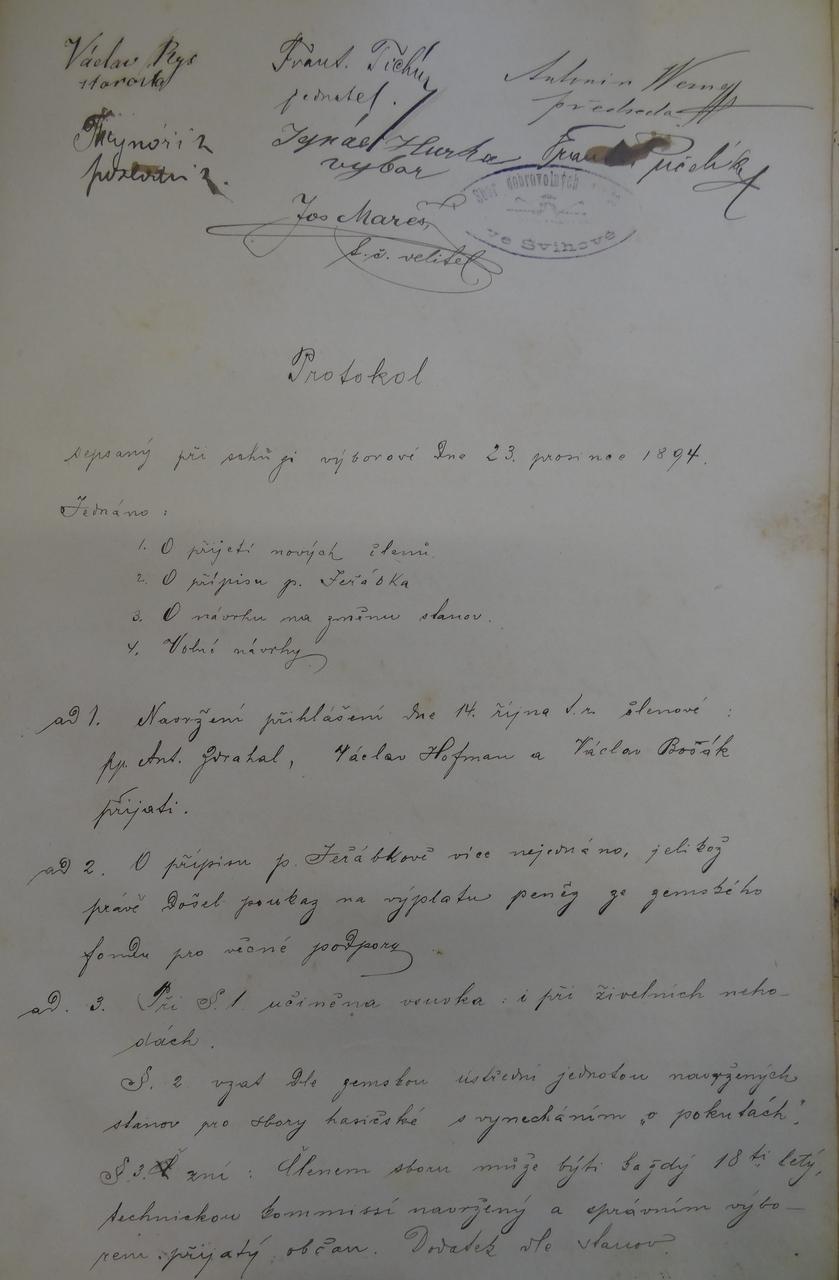 Václav Rys
starosta
Frant. Tichý
jednatel.
Antonín
předseda
Ignác Hurka
výbor
Jos Mareš,
t. č. velitel
Sbor dobrovolných
ve Svinově
Protokol
sepsaný při schůzi výborové dne 23. prosince 1894.
Jednáno:
1. O přijetí nových členů
2. O přípisu p. Jeřábka
3. O návrhu na změnu stanov.
4. Volné návrhy
ad 1. Navržení přihlášení dne 14. října t. r. členové:
pp. Ant. Zdrahal, Václav Hofman a Václav Bošák
přijati.
ad 2. O přípisu p. Jeřábkově více nejednáno, jelikož
právě došel poukaz na výplatu peněz ze zemského
fondu pro věcné podpory
ad. 3. Při §. 1. učiněna vsuvka: i při živelních neho-
dách.
§. 2 vzat dle zemskou ústřední jednotou navržených
stanov pro sbory hasičské s vynecháním „o pokutách".
§. 3. zní: Členem sboru může býti každý 18ti letý,
technickou kommissí navržený a správním výbo-
rem přijatý občan. Dodatek dle stanov.